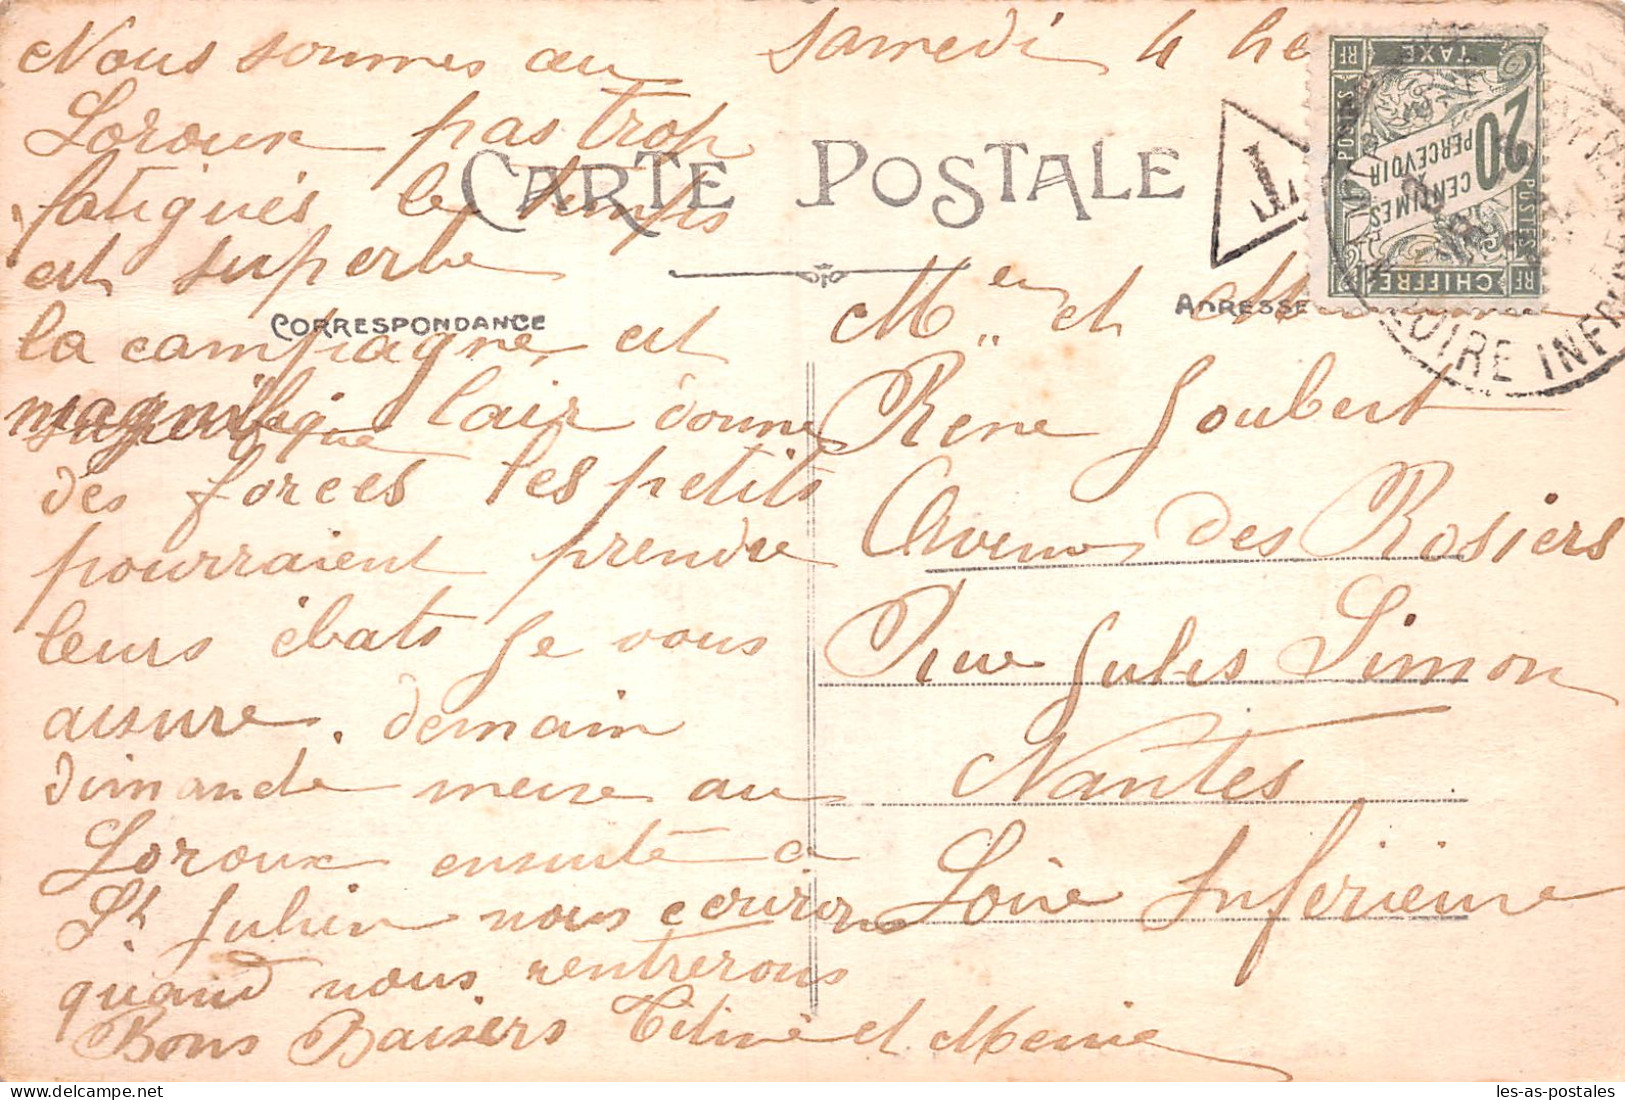 Samedi 4 he
Nous sommes au
Loroux pas trop
fatigués le temps
est superbe
la campagne est
magnifique lair donne
des forces les petits
pourraient prendre
leurs ébats je vous
assure. demain
dimanche messe au
Loroux ensuite a
St Julien nous ecriron
quand nous rentrerons
Bons Baisers Titine et Memie
CARTE POSTALE
CORRESPONDANCE
ADRESSE
Mr et M
Rene Joubert
Avenue des Rosiers
rue Jules Simon
Nantes
Loire Inferieure
T
CHIFFRE TAXE
20 CENTIMES
PERCEVOIR
POSTES
POSTES
RF
RF
RF
RF
LOIRE INFRE
les-as-postales